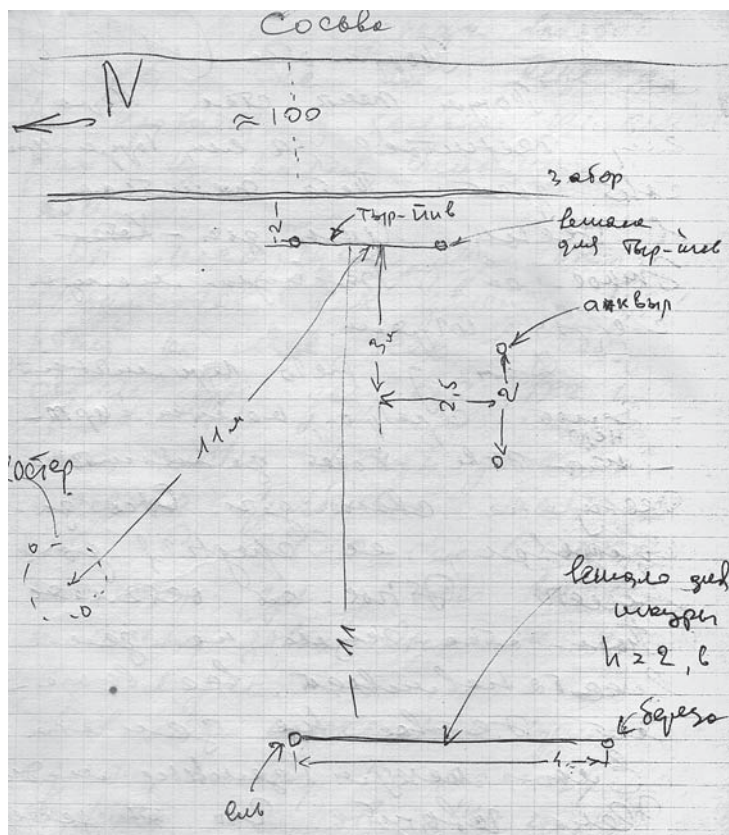 Сосьва
N
≈ 100
забор
2
тыр-йив
вешала
для тыр-йив
анквыр
3м
2
2,5
11м
костер
вешало для
шкуры
h = 2, в
11
береза
4
ель